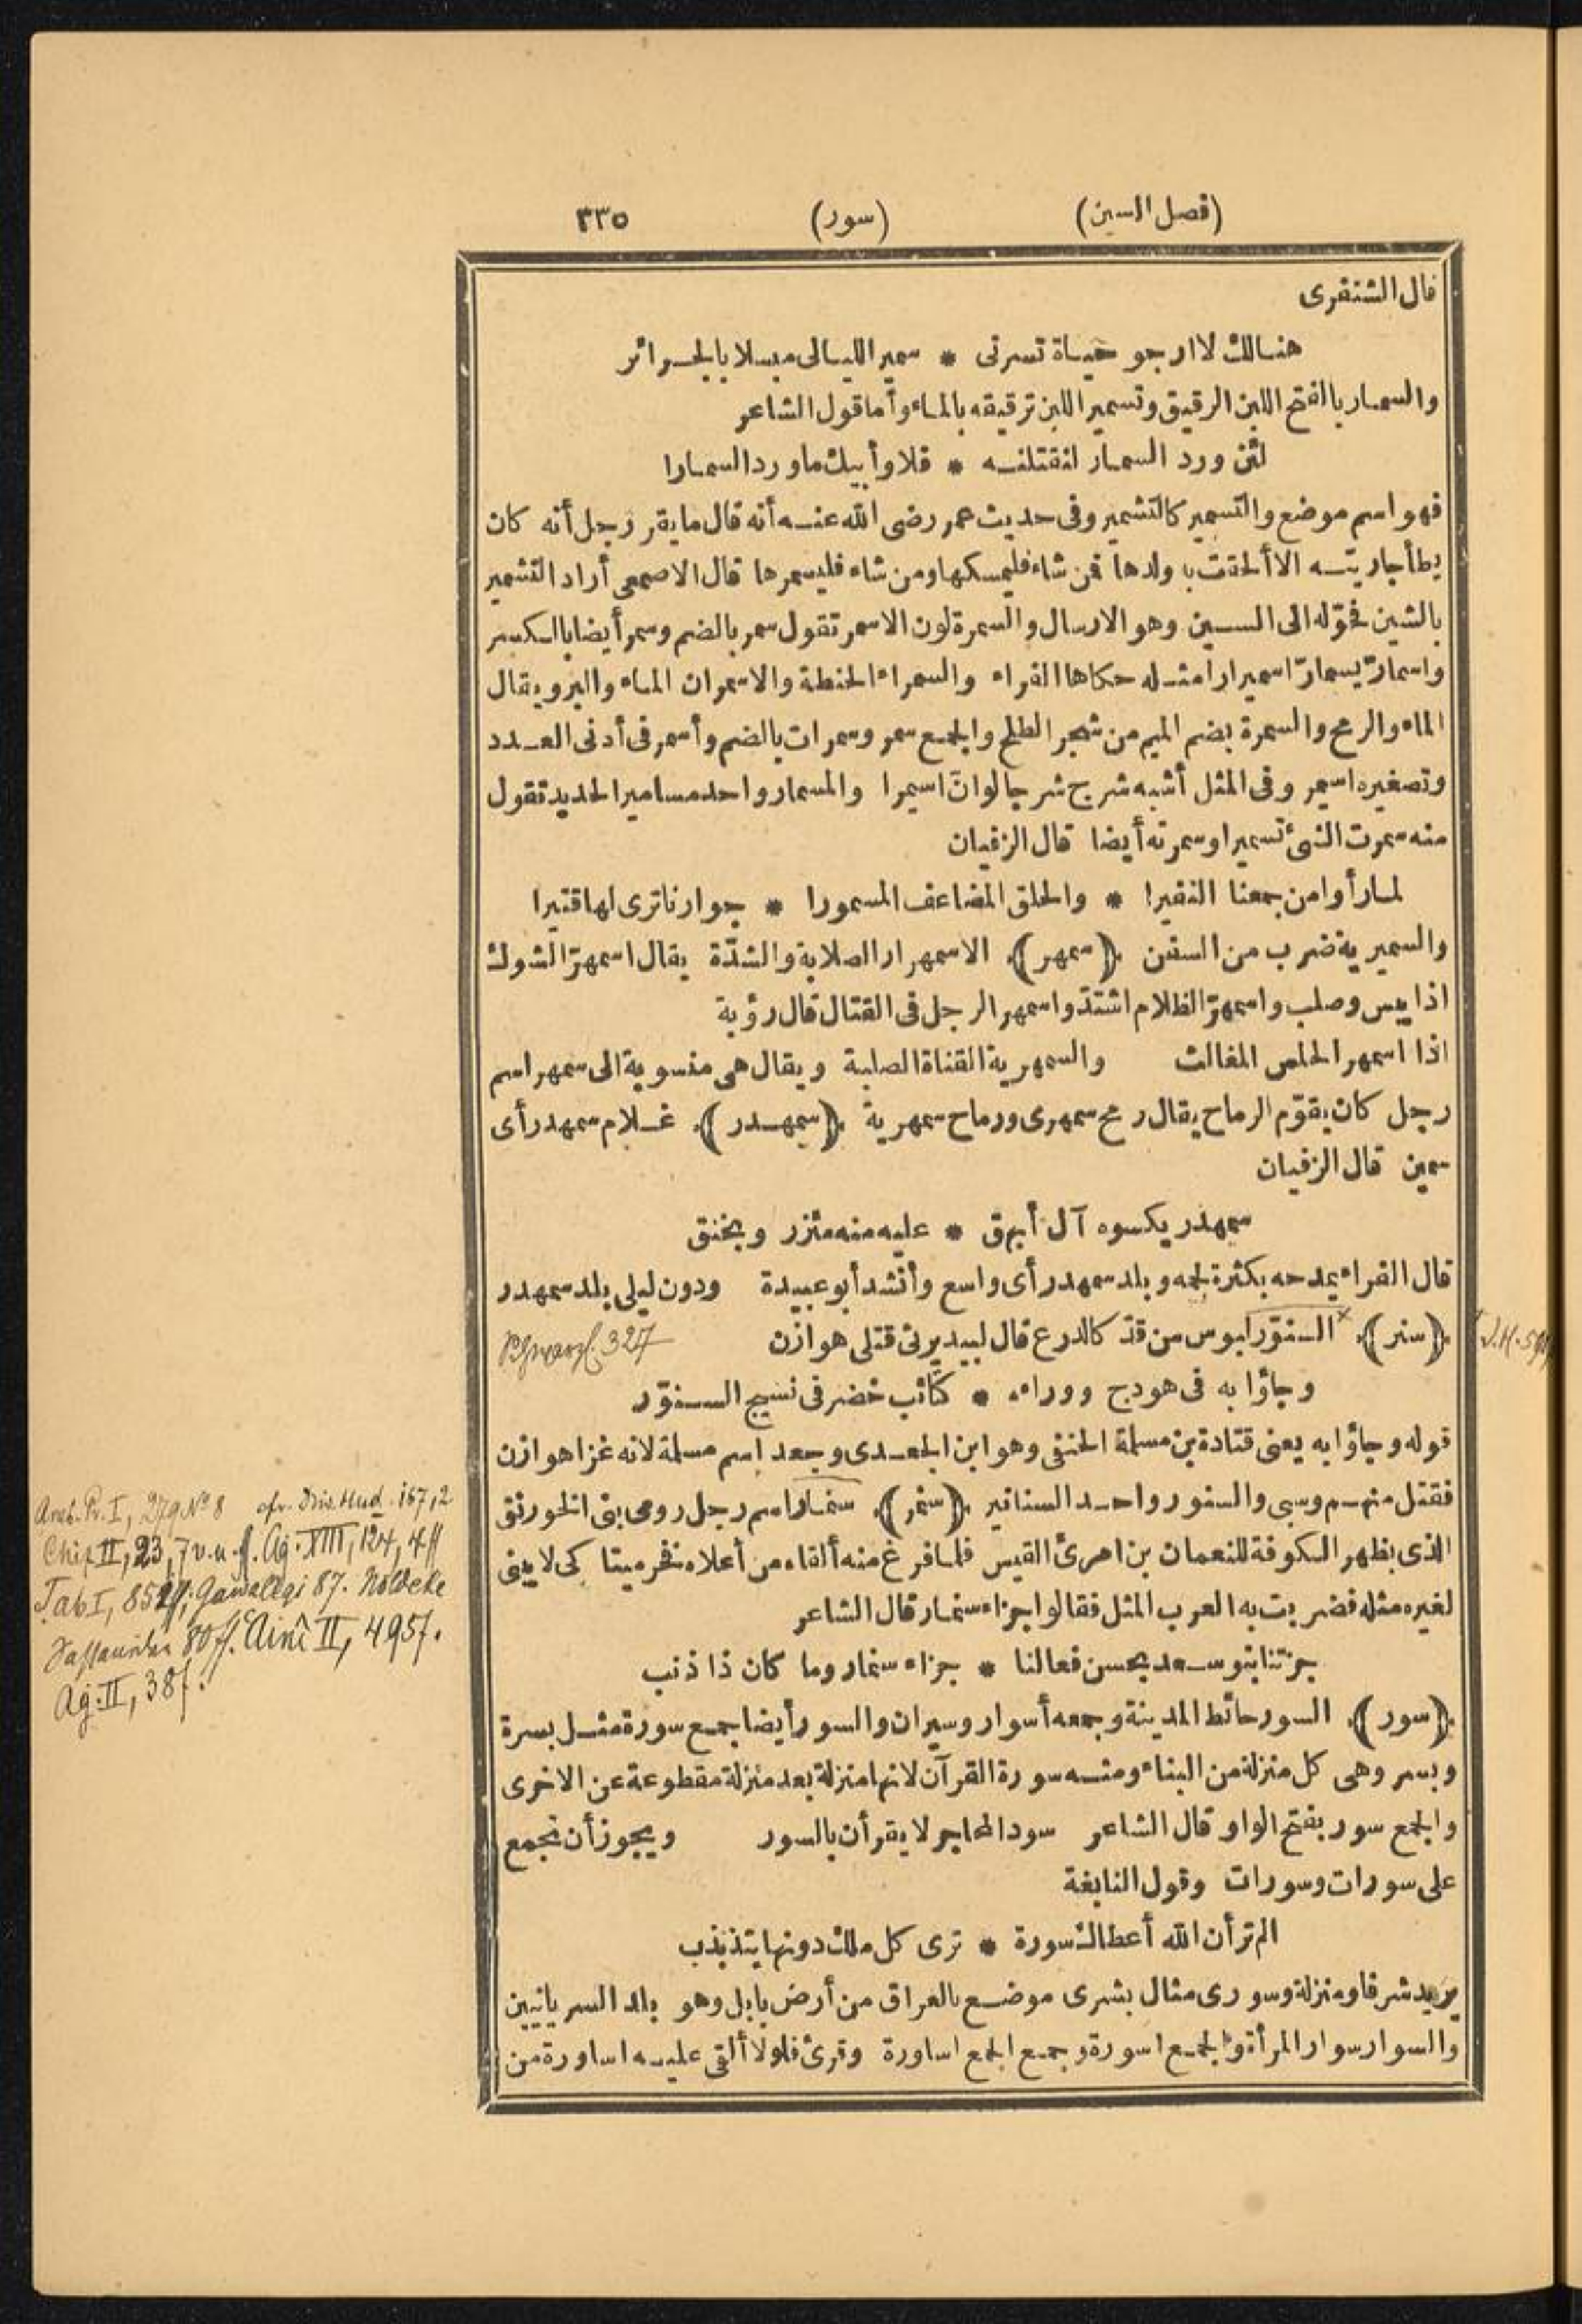 (فصل السين) (سور) ٣٣٥
قال الشنفرى
هنالك لا ارجو حياة تسرنى * سمير الليالى مبسلا بالجرائر
والسمار بالفتح اللبن الرقيق وتسمير اللبن ترقيقه بالماء وأما قول الشاعر
لئن ورد السمار لنقتلنه * فلا وأبيك ما ورد السمارا
فهو اسم موضع والتسمير كالتشمير وفى حديث عمر رضى الله عنه أنه قال ما يقر رجل أنه كان
يطأ جاريته الا ألحقت به ولدها فمن شاء فليمسكها ومن شاء فليسمرها قال الاصمعى أراد التشمير
بالشين فحوّله الى السين وهو الارسال والسمرة لون الاسمر تقول سمر بالضم وسمر أيضا بالكسر
واسمارّ يسمارّ اسميرارا مثله حكاها الفراء والسمراء الحنطة والاسمران الماء والبر ويقال
الماء والرمح والسمرة بضم الميم من شجر الطلح والجمع سمر وسمرات بالضم وأسمر فى أدنى العدد
وتصغيره اسيمر وفى المثل أشبه شرج شرجا لو انّ اسيمرا والمسمار واحد مسامير الحديد تقول
منه سمرت الشئ تسميرا وسمرته أيضا قال الزفيان
لما رأوا من جمعنا النفيرا * والحلق المضاعف المسمورا * جوارنا ترى لها قتيرا
والسميرية ضرب من السفن ﴿سمهر﴾ الاسمهرار الصلابة والشدّة يقال اسمهرّ الشوك
اذا يبس وصلب واسمهرّ الظلام اشتدّ واسمهر الرجل فى القتال قال رؤبة
اذا اسمهر الحلس المغالث والسمهرية القناة الصلبة ويقال هى منسوبة الى سمهر اسم
رجل كان يقوّم الرماح يقال رمح سمهرى ورماح سمهرية ﴿سمهدر﴾ غلام سمهدر أى
سمين قال الزفيان
سمهدر يكسوه آل أبهق * عليه منه مئزر وبخنق
قال الفراء يمدحه بكثرة لحمه وبلد سمهدر أى واسع وأنشد أبو عبيدة ودون ليلى بلد سمهدر
﴿سنر﴾ السنوّر لبوس من قدّ كالدرع قال لبيد يرثى قتلى هوازن
وجاؤا به فى هودج ووراءه * كتائب خضر فى نسيج السنوّر
قوله وجاؤا به يعنى قتادة بن مسلمة الحنفى وهو ابن الجعدى وجعد اسم مسلمة لانه غزا هوازن
فقتل منهم وسبى والسنور واحد السنانير ﴿سنمر﴾ سنمار اسم رجل رومى بنى الخورنق
الذى بظهر الكوفة للنعمان بن امرئ القيس فلما فرغ منه ألقاه من أعلاه فخر ميتا كى لا يبنى
لغيره مثله فضربت به العرب المثل فقالوا جزاء سنمار قال الشاعر
جزتنا بنو سعد بحسن فعالنا * جزاء سنمار وما كان ذا ذنب
﴿سور﴾ السور حائط المدينة وجمعه أسوار وسيران والسور أيضا جمع سورة مثل بسرة
وبسر وهى كل منزلة من البناء ومنه سورة القرآن لانها منزلة بعد منزلة مقطوعة عن الاخرى
والجمع سور بفتح الواو قال الشاعر سود المحاجر لا يقرأن بالسور ويجوز أن تجمع
على سورات وسورات وقول النابغة
الم تر أن الله أعطاك سورة * ترى كل ملك دونها يتذبذب
يريد شرفا ومنزلة وسورى مثال بشرى موضع بالعراق من أرض بابل وهو بلد السريانيين
والسوار سوار المرأة والجمع اسورة وجمع الجمع اساورة وقرئ فلولا ألقى عليه اساورة من
327
Arab. Pr. I, 279 No 8 cfr. Hud. 167,2
II, 23, 7 v. u. ff. Ag. XIII, 124, 4 ff
Tab I, 852 ff; Gawaliqi 87. Nöldeke
Sassaniden 80 ff. Aini II, 495 f.
Ag. II, 38 f.